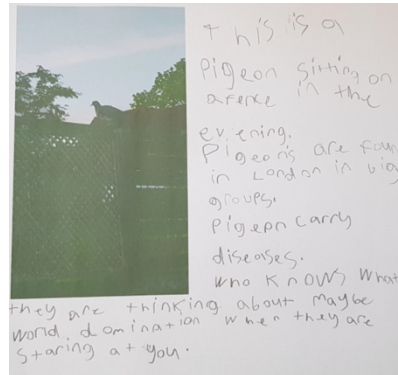 This is a
Pigeon sitting on
a fence in the
evening.
Pigeons are foun
in London in big
groups.
Pigeon carry
diseases.
who knows what
they are thinking about maybe
world domination when they are
staring at you.